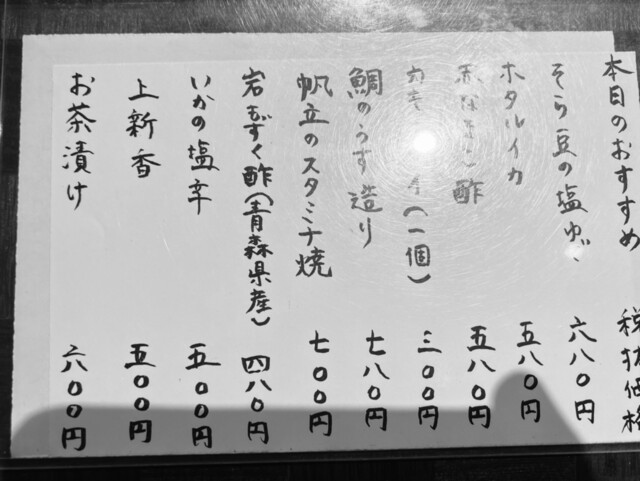 本日のおすすめ 税抜価格
そら豆の塩ゆで 六八〇円
ホタルイカ 五八〇円
酢 五八〇円
(一個) 三〇〇円
鯛のうす造り 七八〇円
帆立のスタミナ焼 七〇〇円
岩もずく酢(青森県産) 四八〇円
いかの塩辛 五〇〇円
上新香 五〇〇円
お茶漬け 六〇〇円